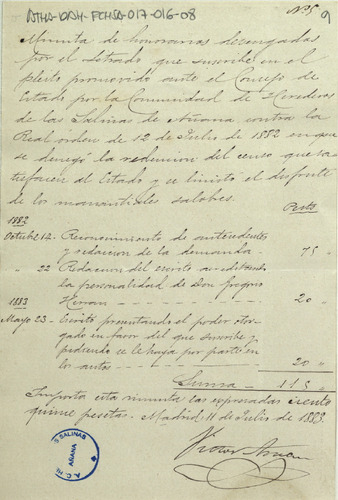 ATHA-DAH-FCHSA-017-016-08
Nº 5
9
Minuta de honorarios devengados
por el letrado que suscribe en el
pleito promovido ante el Consejo de
Estado por la Comunidad de Herederos
de las Salinas de Añana contra la
Real orden de 12 de Julio de 1882 en que
se denegó la redencion del censo que sa-
tisfacen al Estado y se limitó el disfrute
de los manantiales salobres.
Pests
1882
Octubre 12. Reconocimiento de antecedentes
y redaccion de la demanda - 75 "
" 22 Redaccion del escrito acreditando
la personalidad de Don Gregorio
1883 Herran - 20 "
Mayo 23 - Escrito presentando el poder otor-
gado en favor del que suscribe y
pidiendo se le haya por parte en
los autos - 20 "
Suma - 115 "
Importa esta minuta las expresadas ciento
quince pesetas. Madrid 11 de Julio de 1883.
Victor
SALINAS
AÑANA
A. C. H.